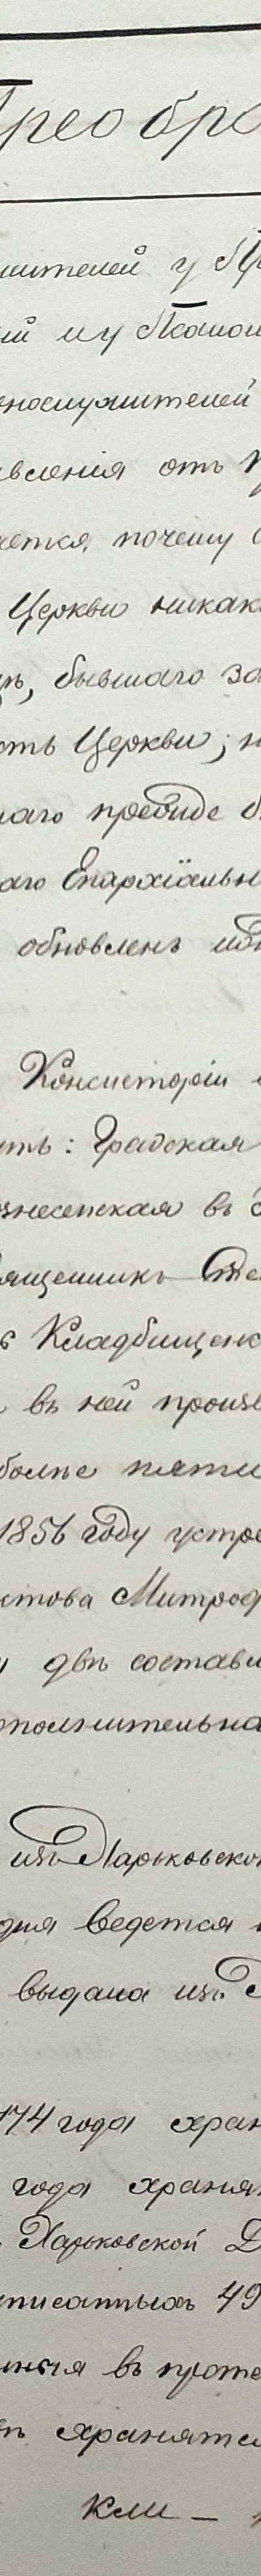 Преобра
жителей у Пр
ей и у Помощ
еннослужителей
авления отъ п
жется, почему с
Церкви никак
бывшаго за
ость Церкви; н
наго прежде б
аго Епархіальн
обновленъ
Консисторіи
ить: Градская
знесенская въ с
вященникъ Сте
Кладбищенс
въ ней произв
болѣе пяти
1856 году устро
истова Митроф
двѣ составл
ополнительна
изъ Харьковской
дня ведется
выдана изъ Х
174 года хран
года хранят
Харьковской Д
писанныхъ 49
въ проте
хранятся
кли –